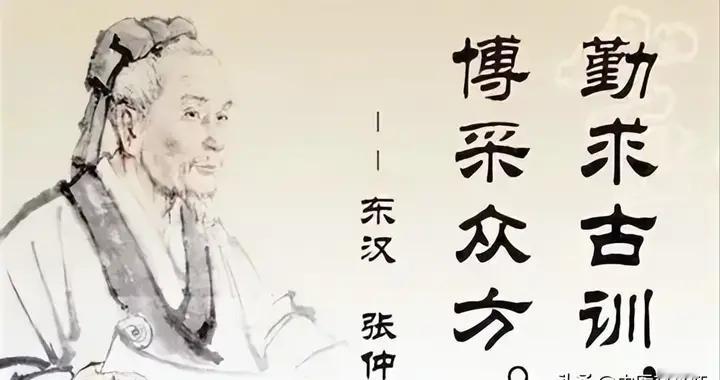 勤求古训，
博采众方。
——东汉 张仲